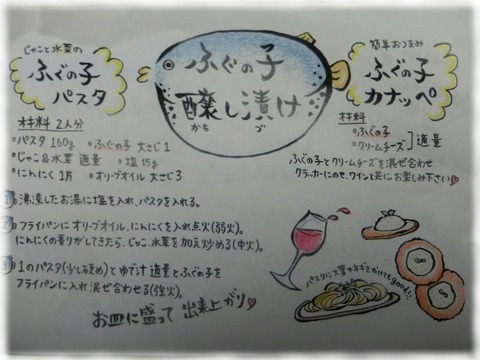 ふぐの子
醸し漬け
かも づ
じゃこと水菜の
ふぐの子
パスタ
材料 2人分
・パスタ 160g ・ふぐの子 大さじ1
・じゃこ&水菜 適量 ・塩 15g
・にんにく 1片 ・オリーブオイル 大さじ3
1 沸湯したお湯に塩を入れ、パスタを入れる。
2 フライパンに オリーブオイル、にんにくを入れ点火(弱火)。
にんにくの香りがしてきたら、じゃこ、水菜を加え炒める(中火)。
3 1のパスタ(少し硬め)とゆで汁 適量とふぐの子を
フライパンに入れ 混ぜ合わせる(強火)。
お皿に盛って 出来上がり♡
簡単おつまみ
ふぐの子
カナッペ
材料
・ふぐの子
・クリームチーズ 適量
ふぐの子とクリームチーズを混ぜ合わせ
クラッカーにのせ、ワインと共にお楽しみ下さい♡
パスタに大葉やネギをかけてもgood!!